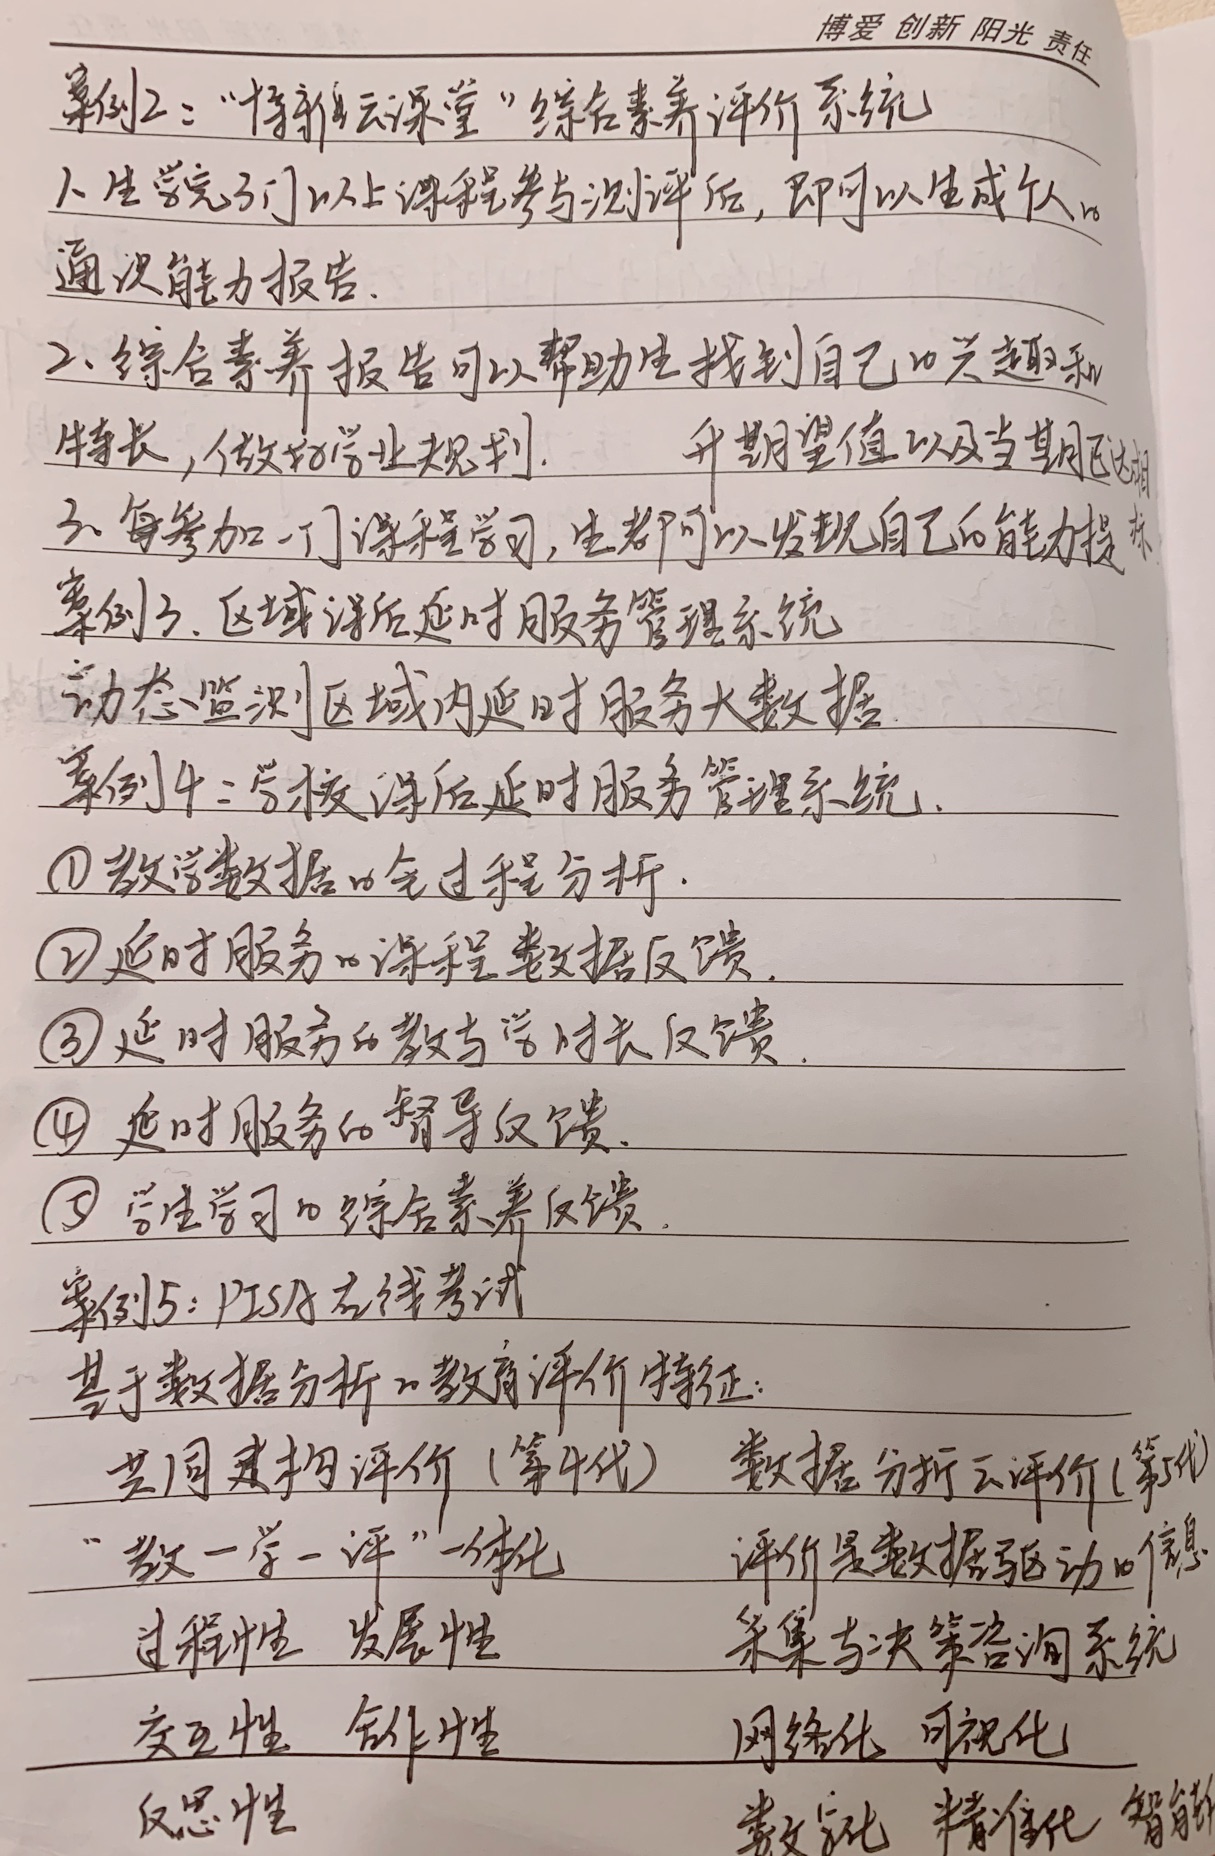 博爱 创新 阳光 责任
案例2："博雅云课堂"综合素养评价系统
1、生学完3门以上课程参与测评后，即可以生成个人的
通识能力报告.
2、综合素养报告可以帮助生找到自己的兴趣和
特长，做好学业规划.
升期望值以及当期已达相
3、每参加一门课程学习，生都可以发现自己的能力提
标
案例3、区域课后延时服务管理系统
动态监测区域内延时服务大数据.
案例4：学校课后延时服务管理系统.
①教学数据的全过程分析.
②延时服务的课程数据反馈.
③延时服务的教与学时长反馈.
④延时服务的督导反馈.
⑤学生学习的综合素养反馈.
案例5：PISA在线考试
基于数据分析的教育评价特征：
共同建构评价（第4代） 数据分析云评价（第5代）
"教一学一评"一体化 评价是数据驱动的信息
过程性 发展性 采集与决策咨询系统
交互性 合作性 网络化 可视化
反思性 数字化 精准化 智能化